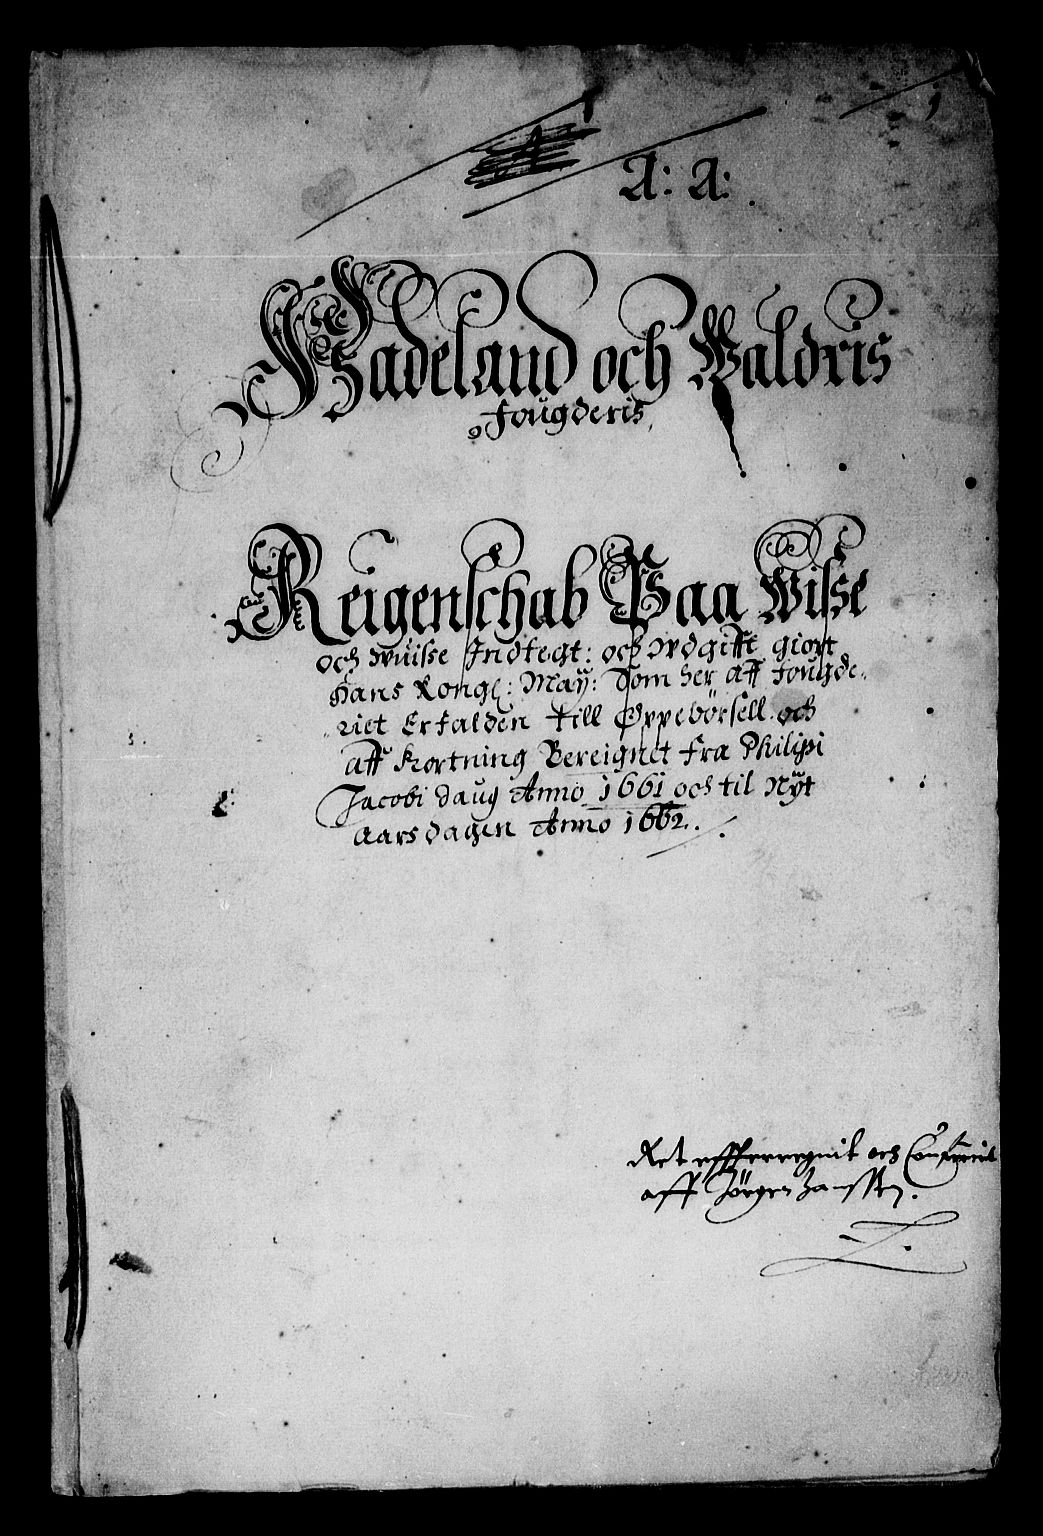 1
A: A:
Hadeland och Waldris
fougderis,
Reigenschab Paa Wisse
och Wuisse Indtegt: och Wdgifft giort
Hans Kongl: May: Som her aff fougde,,
,,riet Erfalden till Oppebörsell och
aff Kortning Bereignet fra Philipi
Jacobi daug Anno 1661 och til Nyt
aars dagen Anno 1662.
Ret effterregnit och
aff Jörgen Janssen.